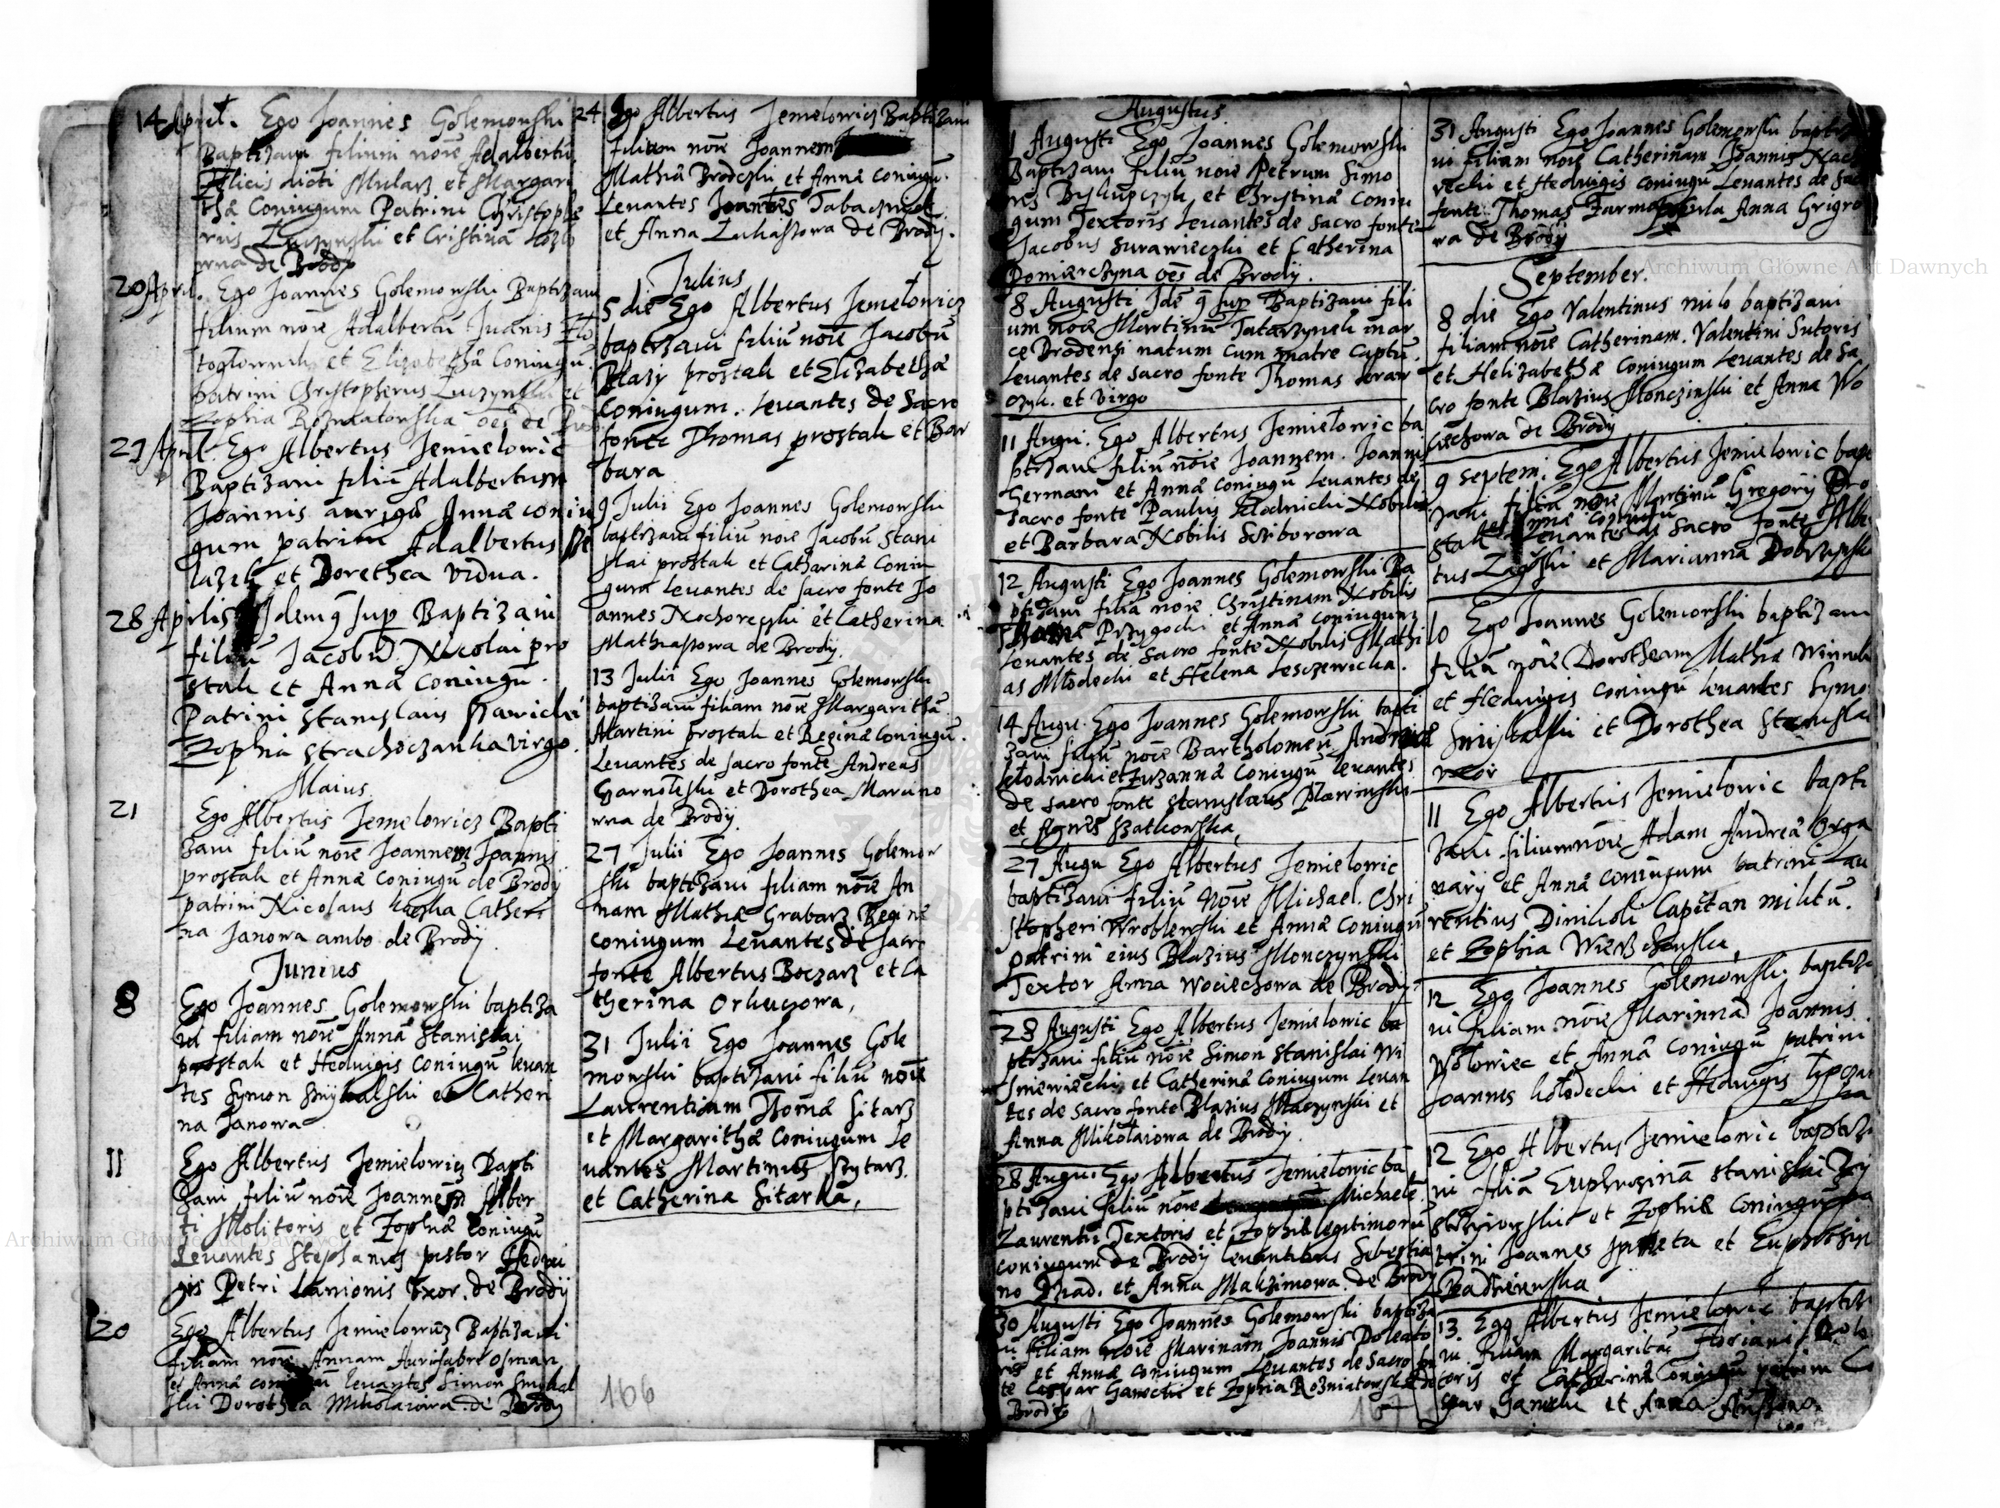 14 April. Ego Joannes Golemowski
Baptizavi filium noie Adalbertū
Felicis dicti Mularz et Margari
thæ Coniugum Patrini Christopho
rus Zuczynski et Cristina
wna de Brody
20 April. Ego Joannes Golemowski Baptizavi
filium noie Adalbertū Juanis
et Elizabethæ Coniugū
patrini Christopherus Zuczynski et
Zophia Rozniatowska oēs de Brody
27 April. Ego Albertus Jemielowic
Baptizavi filiū Adalbertum
Joannis aurigæ Annæ coniu
gum patrini Adalbertus
et Dorethea vidua.
28 Aprilis Idem q sup Baptizavi
filiū Jacobū Nicolai pro
stak et Annæ Coniugū.
Patrini Stanislaus Sawicki
Zophia Strachoczanka virgo.
Maius
21 Ego Albertus Jemelowicz Bapti
zavi filiū noie Joannem Joannis
prostak et Annæ Coniugū de Brody
patrini Nicolaus Catheri
na Janowa ambo de Brody.
Junius
8 Ego Joannes Golemowski baptiza
vi filiam noie Annā Stanislai
prostak et Hedvigis Coniugū levan
tes Symon Smykalski et Catheri
na Janowa
11 Ego Albertus Jemielowicz Bapti
zavi filiū noie Joannem Alber
ti Molitoris et Zophiæ Coniugū
Levantes Stephanus pistor Hedvi
gis Petri Lanionis Uxor. de Brody
20 Ego Albertus Jemielowicz Baptizavi
filiam noie Annam Aurifabri Osman
et Annæ levantes Simon Smykal
ski Dorothea Mikolaiowa de Brody
24 Ego Albertus Jemelowicz Baptizavi
filium noie Joannem
Mathiæ Brodczki et Annæ Coniugū.
Levantes Joannes Tabacznik
et Anna Lukaszowa de Brody.
Julius
5 die Ego Albertus Jemelowicz
baptizavi filiū noie Jacobū
Blasy prostak et Elisabethæ
Coniugum. Levantes de Sacro
fonte Thomas prostak et Bar
bara
9 Julii Ego Joannes Golemowski
baptizavi filiū noie Jacobū Stani
slai prostak et Catharinæ Coniu
gum Levantes de sacro fonte Jo
annes Nachoreczki et Catherina
Mathiaszowa de Brody.
13 Julii Ego Joannes Golemowski
baptizavi filiam noie Margarithā
Martini prostak et Reginæ Coniugū.
Levantes de sacro fonte Andreas
Garnolyski et Dorothea Marcino
wna de Brody.
27 Julii Ego Joannes Golemow
ski baptizavi filiam noie An
nam Mathiæ Grabarz Reginæ
Coniugum Levantes de sacro
fonte Albertus Boczarz et Ca
therina Orlucyowa,
31 Julii Ego Joannes Gole
mowski baptizavi filiū noie
Laurentium Thomæ Sitarz
et Margarithæ Coniugum Le
vantes Martinus Sytarz
et Catherina Sitarka,
166
Augustus
1 Augusti Ego Joannes Golemowski
Baptizavi filiū noie Petrum Simo
nis Biskupczyk et Christinæ Coniu
gum Textoris Levantes de sacro fonte
Jacobus Surawieczki et Catherina
oēs de Brody.
8 Augusti Idē q sup Baptizavi fili
um noie Martinū Tatarzyneli mar
ce Brodensi natum cum matre captū.
Levantes de sacro fonte Thomas
et virgo
11 Augu. Ego Albertus Jemielowic ba
ptizavi filiū noie Joannem. Joannis
Germani et Annæ Coniugū Levantes de
Sacro fonte Paulus Klodnicki Nobilis
et Barbara Nobilis Scriborowa
12 Augusti Ego Joannes Golemowski Ba
ptizavi filiā noie Christinam Nobilis
Thomæ Przygocki et Annæ Coniugum
Levantes de sacro fonte Nobilis Mathi
as Mlodecki et Helena Lesczewicka.
14 Augu. Ego Joannes Golemowski bapti
zavi filiū noie Bartholomeū Andreæ
Klodnicki et Zuzannæ Coniugū levantes
de sacro fonte Stanislaus Plawinski
et Agnes Szatkowska,
27 Augu Ego Albertus Jemielowic
baptizavi filiū Noie Michael. Chri
stopheri Wroblewski et Annæ Coniugū
patrini eius Blazius Monczynski
Textor Anna Wociechowa de Brody.
28 Augusti Ego Albertus Jemielowic ba
ptizavi filiū noie Simon Stanislai Wi
sniewiecki et Catherinæ Coniugum Levan
tes de sacro fonte Blazius Maczynski et
Anna Mikolaiowa de Brody.
28 Augu. Ego Albertus Jemielowic ba
ptizavi filiū noie Michaelē.
Laurentii Textoris et Zophiæ legitimorū
coniugum de Brody levantibus Sebestia
no et Anna Makzimowa. de Brody
30 Augusti Ego Joannes Golemowski baptiza
vi filiam noie Marinam, Joannis Doleato
ris et Annæ Coniugum Levantes de Sacro fon
te Caspar Ganecki et Zophia Rozniatowska de
Brody
167
31 Augusti Ego Joannes Golemowski baptiza
vi filiam noie Catherinam Joannis Nacho
recki et Hedvigis coniugū Levantes de Sac
fonte Thomas Anna Grigro
wa de Brody
September.
8 die Ego Valentinus milo baptizavi
filiam noie Catherinam. Valentini Sutoris
et Helizabethæ Coniugum Levantes de Sa
cro fonte Blazius Monczinski et Anna Wo
ciechowa de Brody
9 Septem. Ego Albertus Jemielowic bapti
zavi filiū noie Martinū Gregory Pro
stak et Annæ Coniugū
Levantes de Sacro fonte Alber
tus Zagorski et Marianna Dobrzynska
10 Ego Joannes Golemowski baptizavi
filiā noie Dorotheam Mathiæ Winnik
et Hedvigis Coniugū levantes Symo
Smykalski et Dorothea Stanislai
uxor
11 Ego Albertus Jemielowic bapti
zavi filium noie Adam Andreæ Orga
rary et Annæ Coniugum patrini Lau
rentius Capitan militū.
et Zophia
12 Ego Joannes Golemowski baptiza
vi filiam noie Marinnā Joannis
Wolowiec et Annæ Coniugū patrini
Joannes Kolodecki et Hedvigis
12 Ego Albertus Jemielowic baptiza
vi filiā Euphrozinā Stanislai
et Zophiæ Coniugū pa
trini Joannes et Euphrosin
13. Ego Albertus Jemielowic baptiza
vi filiam Margaritā Floriani Dolea
toris et Catherinæ Coniugū patrini Ca
spar Ganecki et Anna
Archiwum Główne Akt Dawnych
Archiwum Główne Akt Dawnych